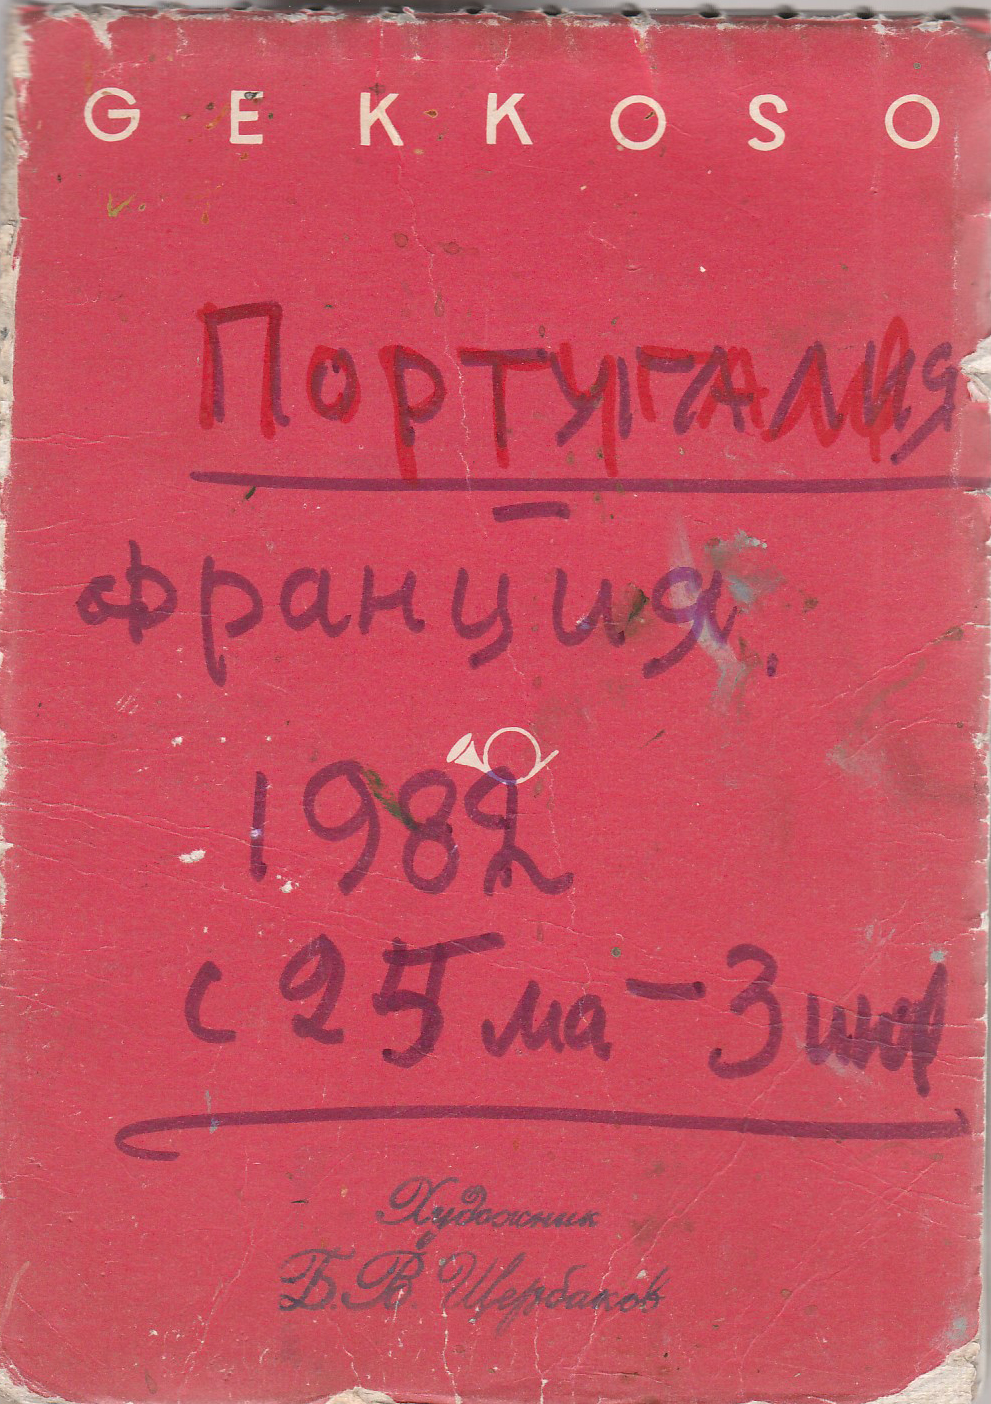 GEKKOSO
Португалия
–
Франция.
1982
с 25 ма – 3
Художник
Б.В. Щербаков